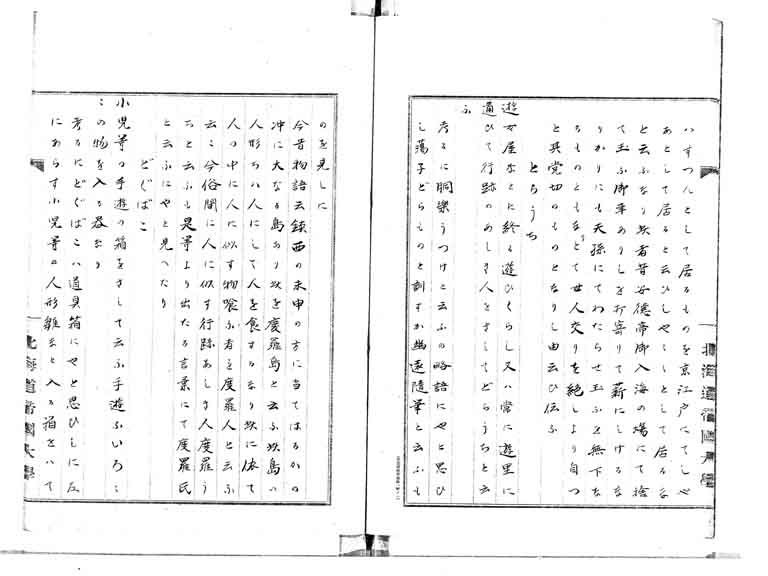 ハすつんとして居るものを京江戸にてしや
あとして居ると云ひしや〳〵として居るな
と云ふなり此者昔安德帝御入海の場にて捨
て玉ふ御車ありしを打寄りて薪にしけるな
りかりにも天孫にてわたらせ玉ふを無下な
るものともなりとて世人交りを絶しより自つ
と其党切のものとなりし由云ひ伝ふ
とらうち
遊女屋なとに終日遊ひくらし又ハ常に遊里に
通ひて行跡のあしき人をさしてどらうちと云
ふ
考るに胴樂うつけと云ふの略語にやと思ひ
し蕩子どらものと訓すか幽遠隨筆と云ふも
のを見しに
今昔物語云鎮西の未申の方に当てはるかの
沖に大なる島あり此を度羅島と云ふ此島ハ
人形ちハ人にして人を食するなり此に依て
人の中に人に似す物喰ふ者を度羅人と云ふ
云々今俗間に人に似す行跡あしき人度羅う
ちと云ふも是等より出たる言葉にて度羅氏
と云ふにやと見へたり
どぐばこ
小児等の手遊の箱をさして云ふ手遊ふいろ〳〵
の物を入る器なり
考るにどぐばこハ道具箱にやと思ひしに左
にあらす小児等の人形雛など入る箱をハて
北海道帝國大學
北海道帝國大學